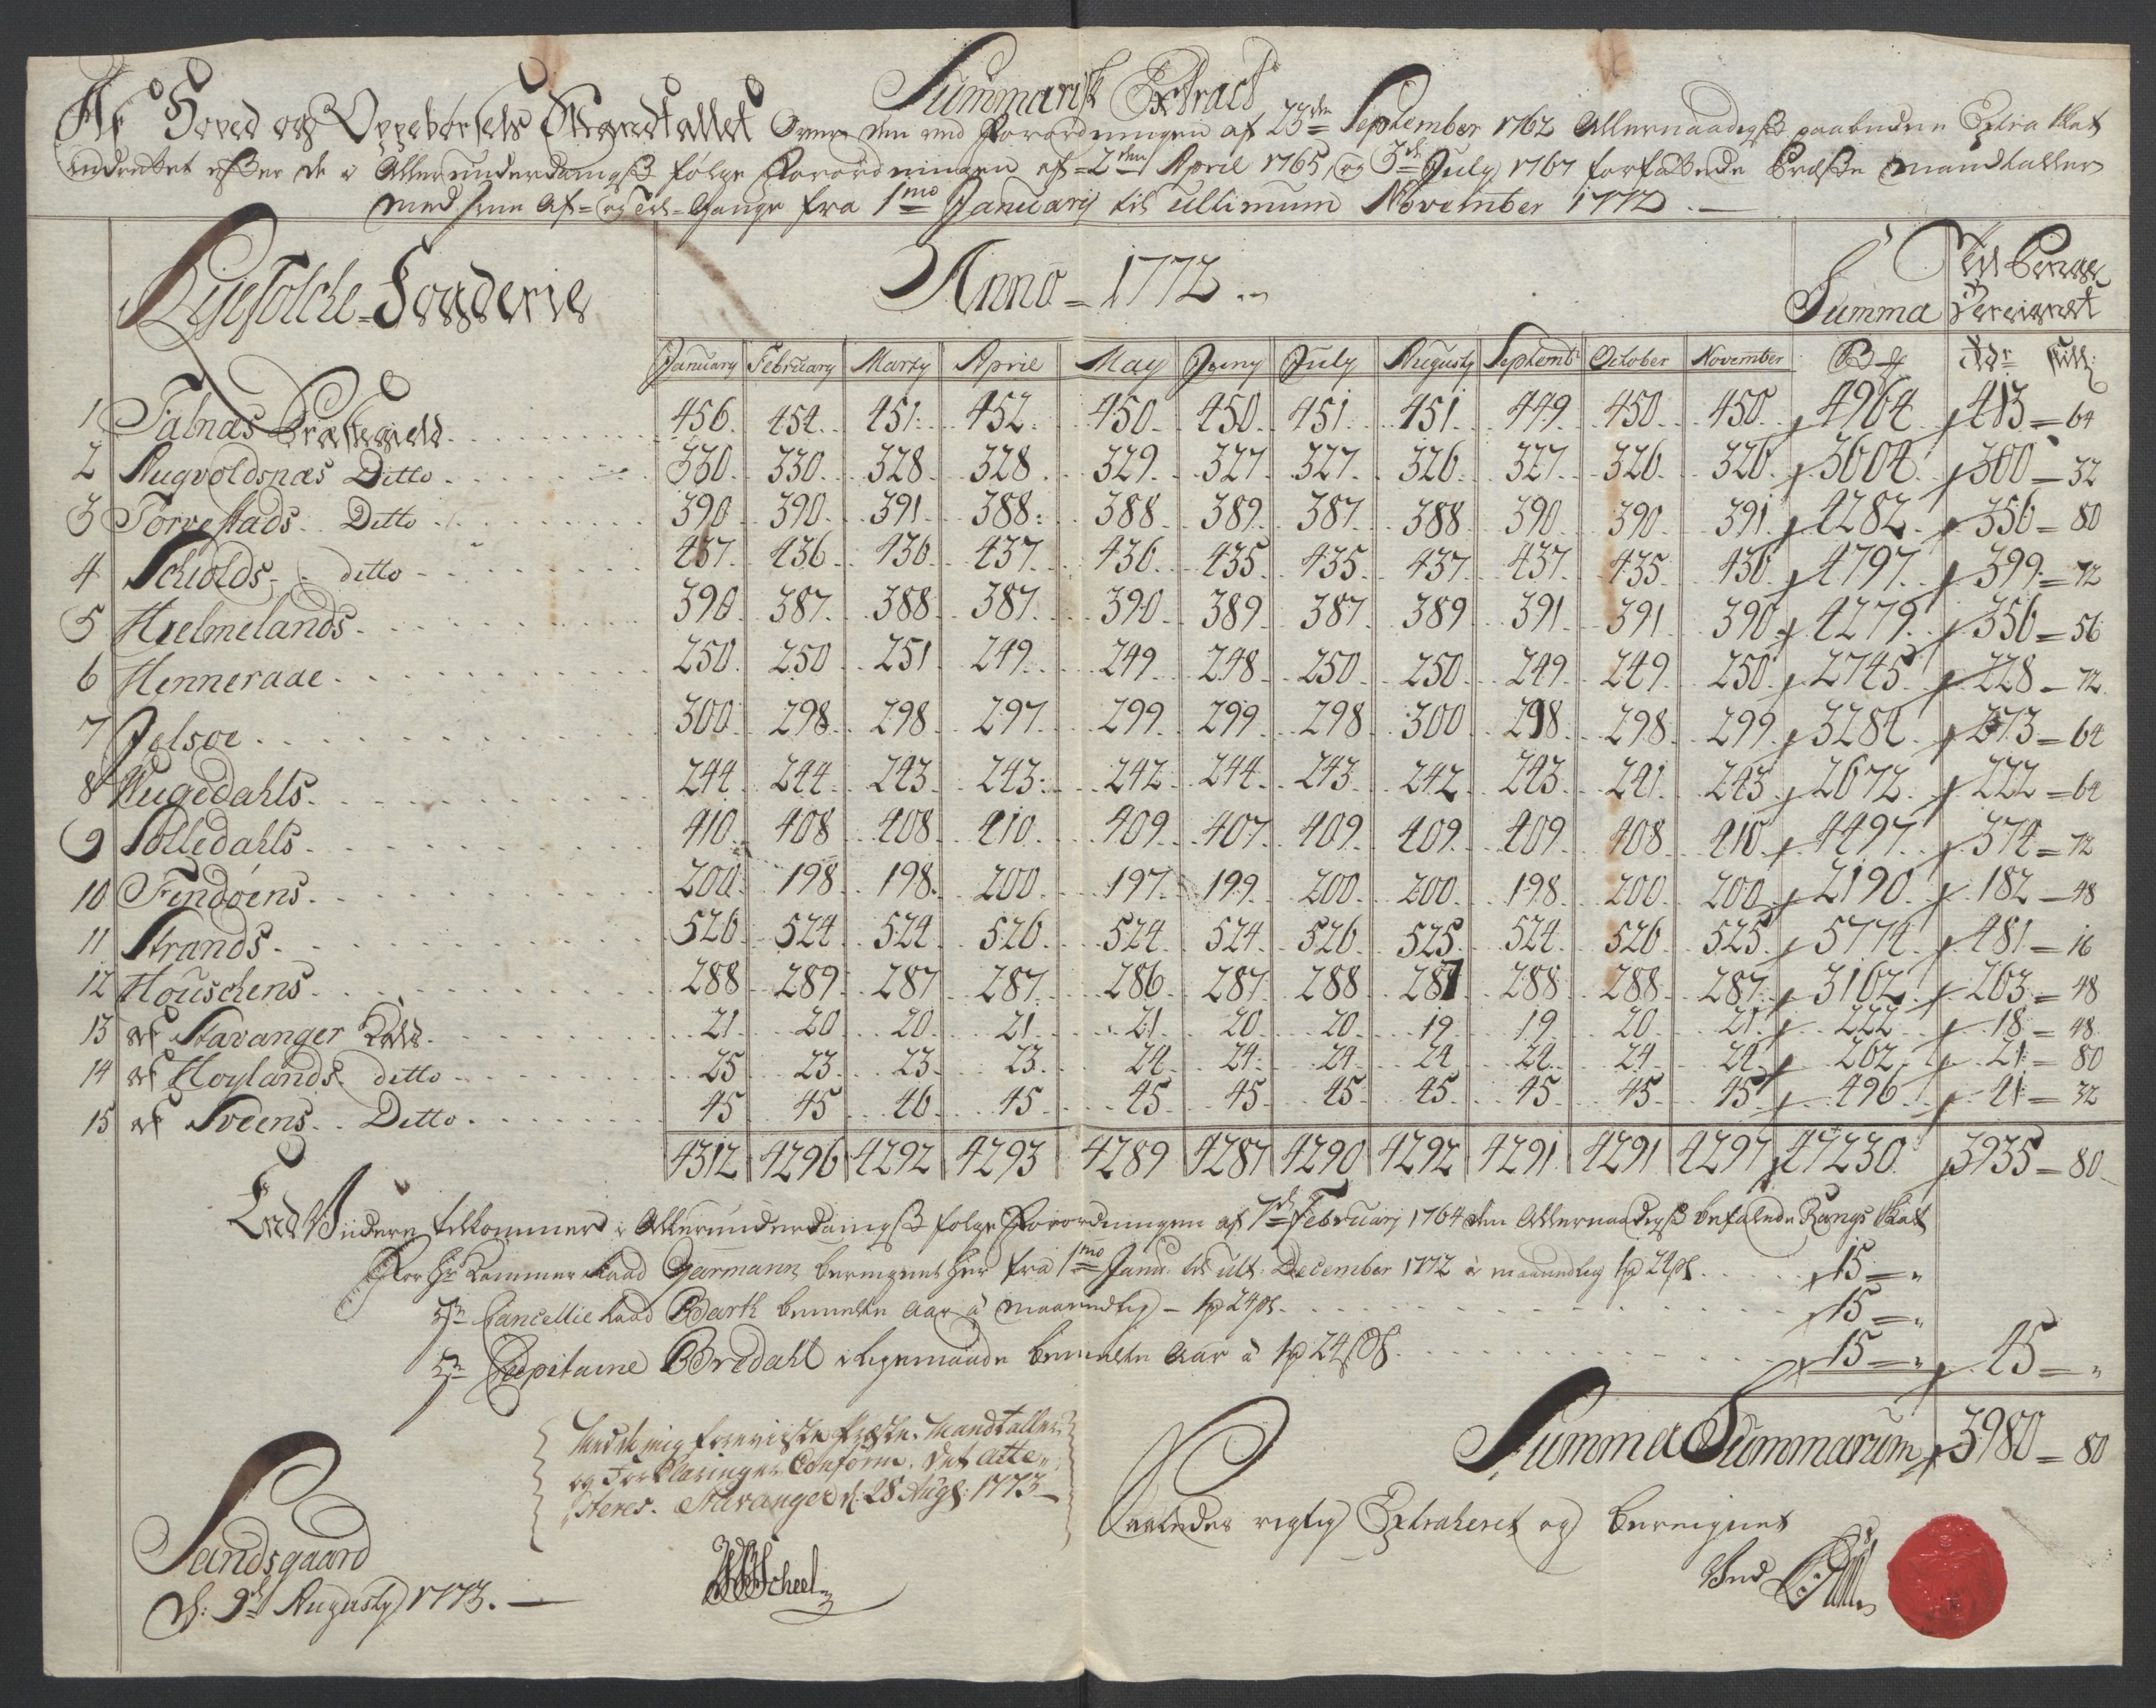 Summarisk Extract
Af Hoved og Oppebørsels Mandtallet Over den ved Forordningen af 23de September 1762 Allernaadigst paabudne Extra Skat
indrettet efter de i Allerunderdanigst følge Forordningen af 2den April 1765, og 3de July 1767 forfattede Præste Mandtaller
med sine Af- og Til-Gange fra 1mo January til ultimum November 1772.
Ryefølche Fogderie Anno 1772 Summa Til Penge Bereignet
January February Marty April May Juny July Augusty Septembr October November Rdr skill:
1 Falnæs Præstegield 456 454 451 452 450 450 451 451 449 450 450 4964 413 = 64
2 Augvoldsnæs Ditto 330 330 328 328 329 327 327 326 327 326 326 3604 300 = 32
3 Torvestads Ditto 390 390 391 388 388 389 387 388 390 390 391 4282 356 = 80
4 Schiolds ditto 437 436 436 437 436 435 435 437 437 435 436 4797 399 = 72
5 Hielmelands 390 387 388 387 390 389 387 389 391 391 390 4279 356 = 56
6 Henneraae 250 250 251 249 249 248 250 250 249 249 250 2745 228 = 72
7 Jelsøe 300 298 298 297 299 299 298 300 298 298 299 3284 273 = 64
8 Augedahls 244 244 243 243 242 244 243 242 243 241 243 2672 222 = 64
9 Solledahls 410 408 408 410 409 407 409 409 409 408 410 4497 374 = 72
10 Findøens 200 198 198 200 197 199 200 200 198 200 200 2190 182 = 48
11 Strands 526 524 524 526 524 524 526 525 524 526 525 5774 481 = 16
12 Houschens 288 289 287 287 286 287 288 287 288 288 287 3162 263 = 48
13 af Stavanger 21 20 20 21 21 20 20 19 19 20 21 222 18 = 48
14 af Hoylands ditto 25 23 23 23 24 24 24 24 24 24 24 262 21 = 80
15 af Soeens Ditto 45 45 46 45 45 45 45 45 45 45 45 496 41 = 32
4312 4296 4292 4293 4289 4287 4290 4292 4291 4291 4297 47230 3935 = 80
End Videre tilkommer i Allerunderdanigst følge Forordningen af 7de February 1764 den Allernaadigst befalede Rangs Skat
For Hr Kammer Raad Garmann bereignet her fra 1mo Janu: til ult: December 1772 à maanedlig 1 24 s. 15 = "
Hr Cancellie Raad Barth bemelte Aar à maanedlig - 1 24 s. 15 = "
Hr Capitaine Bredahl i ligemaade bemelte Aar à 1 24 s. 15 = " 45 = "
Summa Summarum 3980 = 80
Med de mig foreviiste Præste-Mandtaller
og Forklaringer Conform, Det atte-
steres. Stavanger d: 28 Aug: 1773
Scheel
Saaledes rigtig Extraheret og bereignet
Ved
Sandsgaard
d: 9de Augusty 1773.